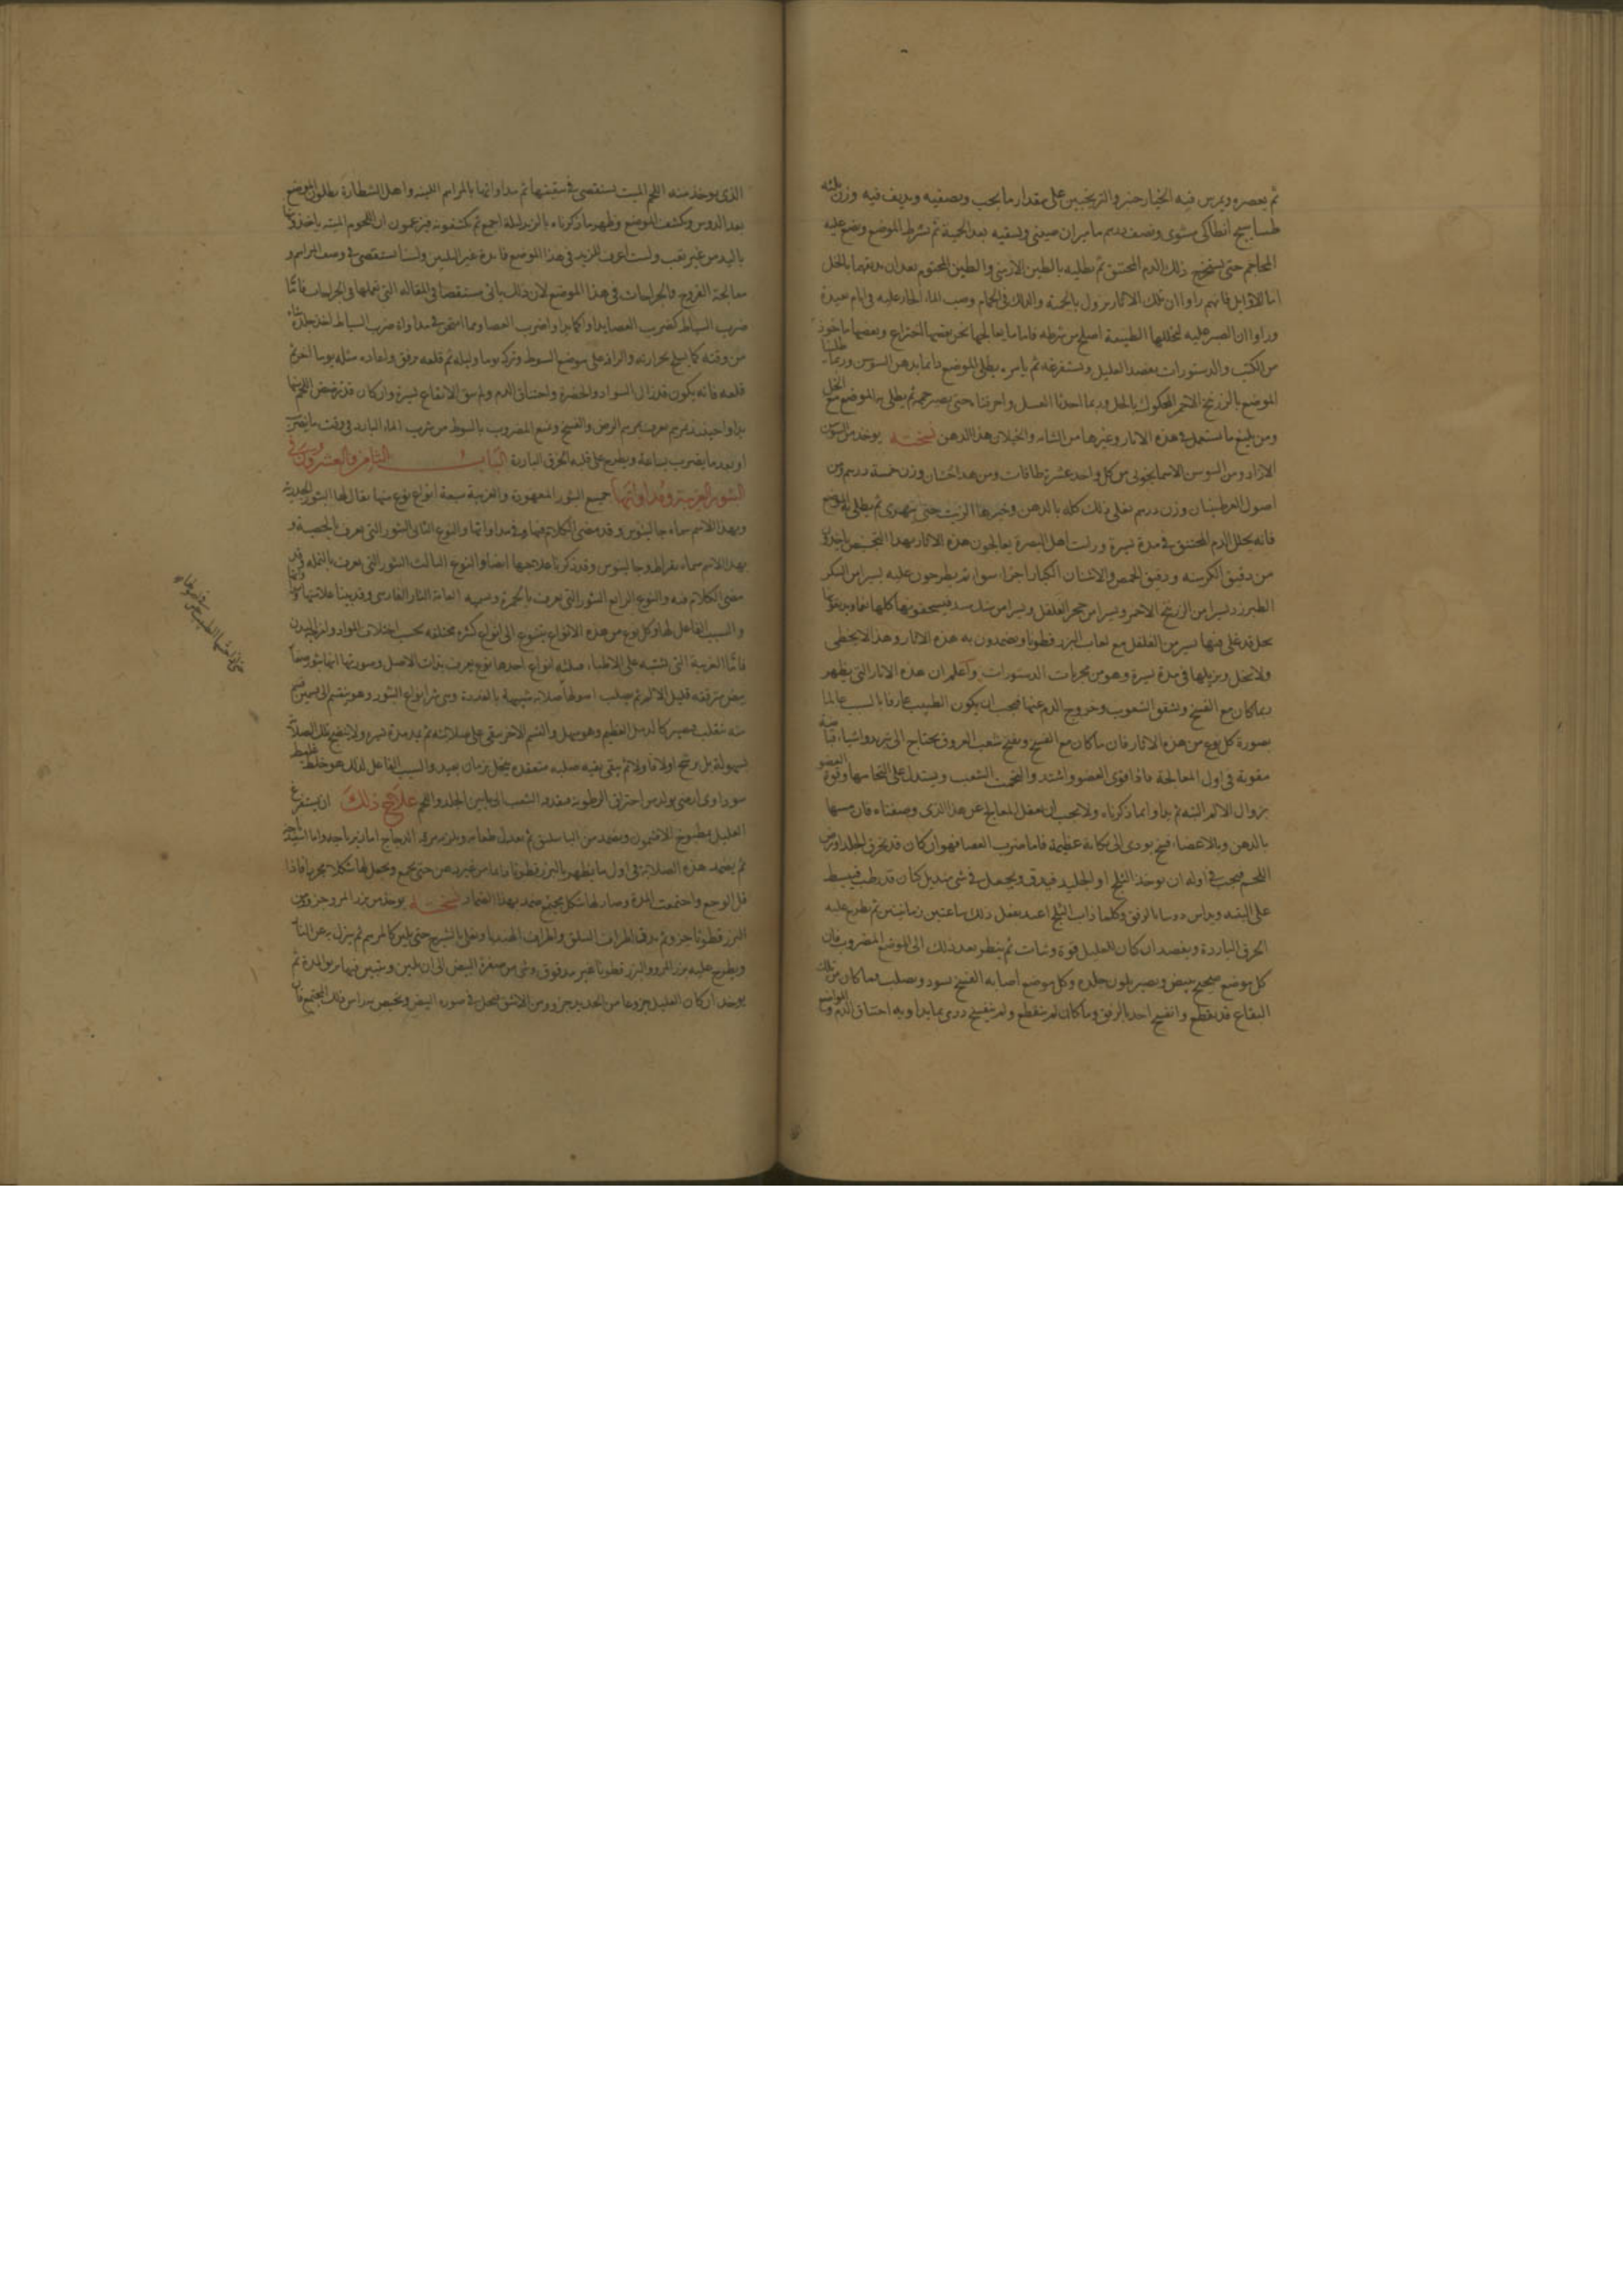 ثم يعصره ويمرس فيه الخيار جنبر والترنجبين على مقدار ما يجب ويصفيه ويديف فيه وزن ثلثه
طساسيج انطاكى مشوى ونصف درهم ماميران صينى ويسقيه بعد الحمية ثم يشرط الموضع ويضع عليه
المحاجم حتى يستخرج ذلك الدم المحتقن ثم يطليه بالطين الارمنى والطين المختوم بعد ان يديفهما بالخل
اما الاوايل فانهم راوا ان تلك الاثار تزول بالحمية والدلك فى الحمام وصب الماء الحار عليه فى ايام عديدة
وراوا ان الصبر عليه لتحللها الطبيعة اصلح من شرطه فاما ما يعالجها نحن بعضها اختراع وبعضها ماخوذ
من الكتب والدستورات بفصد العليل ونستفرغه ثم يامره بطلى الموضع دايما بدهن السوسن وربما طلينا
الموضع بالزرنيخ الاحمر المحكوك بالخل وربما اخذنا العسل واحرقناه حتى يصير ثم يطلى به الموضع مع الخل
ومن بليغ ما يستعمل فى هذه الاثار وغيرها من الشامه والخيلان هذا الدهن نسخته يوخذ من السوسن
الازاد ومن السوسن الاسمانجونى من كل واحد عشرة طاقات ومن وزن خمسة درهم ومن
اصول العرطنيثا وزن درهم يغلى ذلك كله بالدهن حتى يتهرى ثم يطلى به الموضع
فانه يحلل الدم المحتقن فى مدة يسيرة ورايت اهل البصرة يعالجون هذه الاثار بهذا ياخذون
من دقيق الكرسنه ودقيق الحمص والاشنان الكبار اجزاء سواء ثم يطرحون عليه يسيرا من السكر
الطبرزد ويسيرا من الزرنيخ الاحمر ويسيرا من حجر الفلفل ويسيرا من فيسحقونها كلها نعما ويديفونها
بخل قد غلى فيها يسير من الفلفل مع لعاب البزرقطونا ويضمدون به هذه الاثار وهذا لا يخطى
ولا يخل ويزيلها فى مدة يسيرة وهو من مجربات الدستورات واعلم ان هذه الاثار التى يظهر
ربما كان مع الفسخ وتشقق الشعوب وخروج الدم عنها فيجب ان يكون الطبيب عارفا بالسبب عالما
بصورة كل نوع من هذه الاثار فان ما كان مع الفسخ وتفتح شعب العروق يحتاج الى تبريد واشياء قباضة
مقوية فى اول المعالجة فاذا قوى العضو واشتد والتحمت الشعب ويستدل على التحامها وقوة العضو
بزوال الالم البتة ثم يداوا بما ذكرناه ولا يجب ان يغفل المعالج عن هذا الذى وصفناه فان مسها
بالدهن وبالاعضاء فسخ يودى الى نكاية عظيمة فاما ضرب العصا فهو ان كان قد تخرق الجلد اورض
اللحم فيجب فى اوله ان يوخذ الثلج او الجليد فيدق ويجعل فى شى منديل كتان قد رطب فيبسط
على البقعة ويداس دوسا بالرفق وكلما ذاب الثلج اعيد يفعل ذلك ساعتين زمانيتين ثم يطرح عليه
الخرق الباردة ويفصد ان كان للعليل قوة وثبات ثم ينظر بعد ذلك الى الموضع المضروب فان
كل موضع صحيح يبيض ويصير بلون جلده وكل موضع اصابه الفسخ يسود ويصلب فما كان من تلك
البقاع قد تقطع وانفسخ اخذ بالرفق وما كان لم يتقطع ولم ينفسخ دووى بما يداوى به احتقان الدم والمواضع
الذى يوخذ منه اللحم الميت يستقصى فى تنقيتها ثم مداواتها بالمراهم اللينه واهل الشطارة يطلون الموضع
بعد الدوس وكشف الموضع وظهر ما ذكرناه بالزبد ليلة اجمع ثم يكشفونه فيزعمون ان اللحوم الميتة ياخذونها
باليد من غير تعب ولست اعرف للزبد فى هذا الموضع فايدة غير التليين ولسنا نستقصى فى وصف المراهم و
معالجة القروح والجراحات فى هذا الموضع لان ذلك ياتى مستقصا فى المقاله التى نعملها فى الجراحات فاما
ضرب السياط كضرب العصا يداوا كما يداوا ضرب العصا ومما امتحن فى مداواة ضرب السياط اخذ جلد شاه
من وقته كما يسلخ بحرارته والزاقه على موضع السوط وتركه يوما وليله ثم قلعه برفق واعاده مثله يوما اخر ثم
قلعه فانه يكون قد زال السواد والخضرة واحتقان الدم ولم يبق الا بقاع يسيرة وان كان قد ترضض اللحم فيما
يداوا حينئذ بمرهم يعرف بمرهم الرض والفسخ ويمنع المضروب بالسوط من شرب الماء البارد فى وقت ما يضرب
او بعد ما يضرب بساعة ويطرح على قلبه الخرق الباردة الباب الثامن والعشرون فى
البثور الغريبة ومداواتها جميع البثور المعهودة والغريبة سبعة انواع نوع منها يقال لها البثور الجدرية
وبهذا الاسم سماه جالينوس وقد مضى الكلام فيها وفى مداواتها والنوع الثانى البثور التى تعرف بالحصبة و
بهذا الاسم سماه بقراط وجالينوس وقد ذكرنا علاجها ايضا والنوع الثالث البثور التى تعرف بالنمله وقد
مضى الكلام فيه والنوع الرابع البثور التى تعرف بالجمرة وتسميه العامة النار الفارسى وقد بينا علاماتها
والسبب الفاعل لها وكل نوع من هذه الانواع يتنوع الى انواع كثيرة مختلفه بحسب اختلاف المواد والبلدان
فاما الغريبة التى تشتبه على الاطباء فثلثة انواع احدها نوع يعرف بذات الاصل وصورتها انها بثور صغار
بيض متفرقة قليل الالم ثم يصلب اصولها صلابه شبيهة بالغددة وهى شر انواع البثور وهو ينقسم الى قسمين قسم
منه ينقلب فيصير كالدمل العظيم وهو سهل والقسم الاخر يبقى على صلابته ثم يمد مدة يسيره ولا ينضج تلك الصلابة
بسهولة بل يرشح اولا فاولا ثم يبقى بقيه صلبه متعقده يتحلل بزمان بعيد والسبب الفاعل لذلك هو خلط غليظ
سوداوى ارضى يولد من احتراق الرطوبة فى الشعب الى ما بين الجلد واللحم علاج ذلك ان يستفرغ
العليل بمطبوخ الافتيمون ويفصد من الباسليق ثم يعدل طعامه ويلزم مرق الدجاج
ثم يضمد هذه الصلابة فى اول ما يظهر بالبزرقطونا دايما من غير دهن حتى يجمع ويجعل لها شكلا فاذا
قل الوجع واجتمعت المدة وصار لها شكل يجتمع ضمد بهذا الضماد نسخته يوخذ من بزر المرو جزو ومن
البزرقطونا جزو ثم يدق اطراف السلق واطراف الهندبا ويغلى بالشيرج حتى يلين كالمرهم ثم ينزل به عن النار
ويطرح عليه بزر المرو والبزرقطونا غير مدقوق وشى من صفرة البيض الى ان يلين ويتبين فيها المدة ثم
يوخذ ان كان العليل جزوعا من الحديد جزو ومن الاشق فيحل فى صفره البيض راس ذلك المجتمع فان